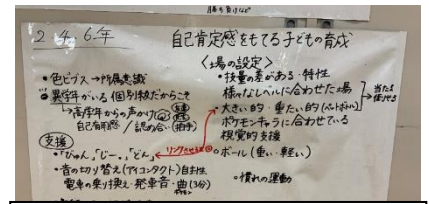 2.4.6.年
自己肯定感をもてる子どもの育成
・色ビブス→所属意識
異学年がいる個別校だからこそ
→高学年からの声かけ
自己有用感/認め合い(拍手)
支援
・「びゅん」「じー。」「どん」
リンクさせる
・音の切り替え(アイコンタクト)自主性
電車の乗り換え・発車音・曲(3分)
<場の設定>
・技量の差がある・特性
様々なレベルに合わせた場
・大きい的・重たい的(ペットボトル)
ポケモンキャラに合わせている
視覚的支援
当たる
倒せる
・ボール(重い・軽い)
・慣れの運動